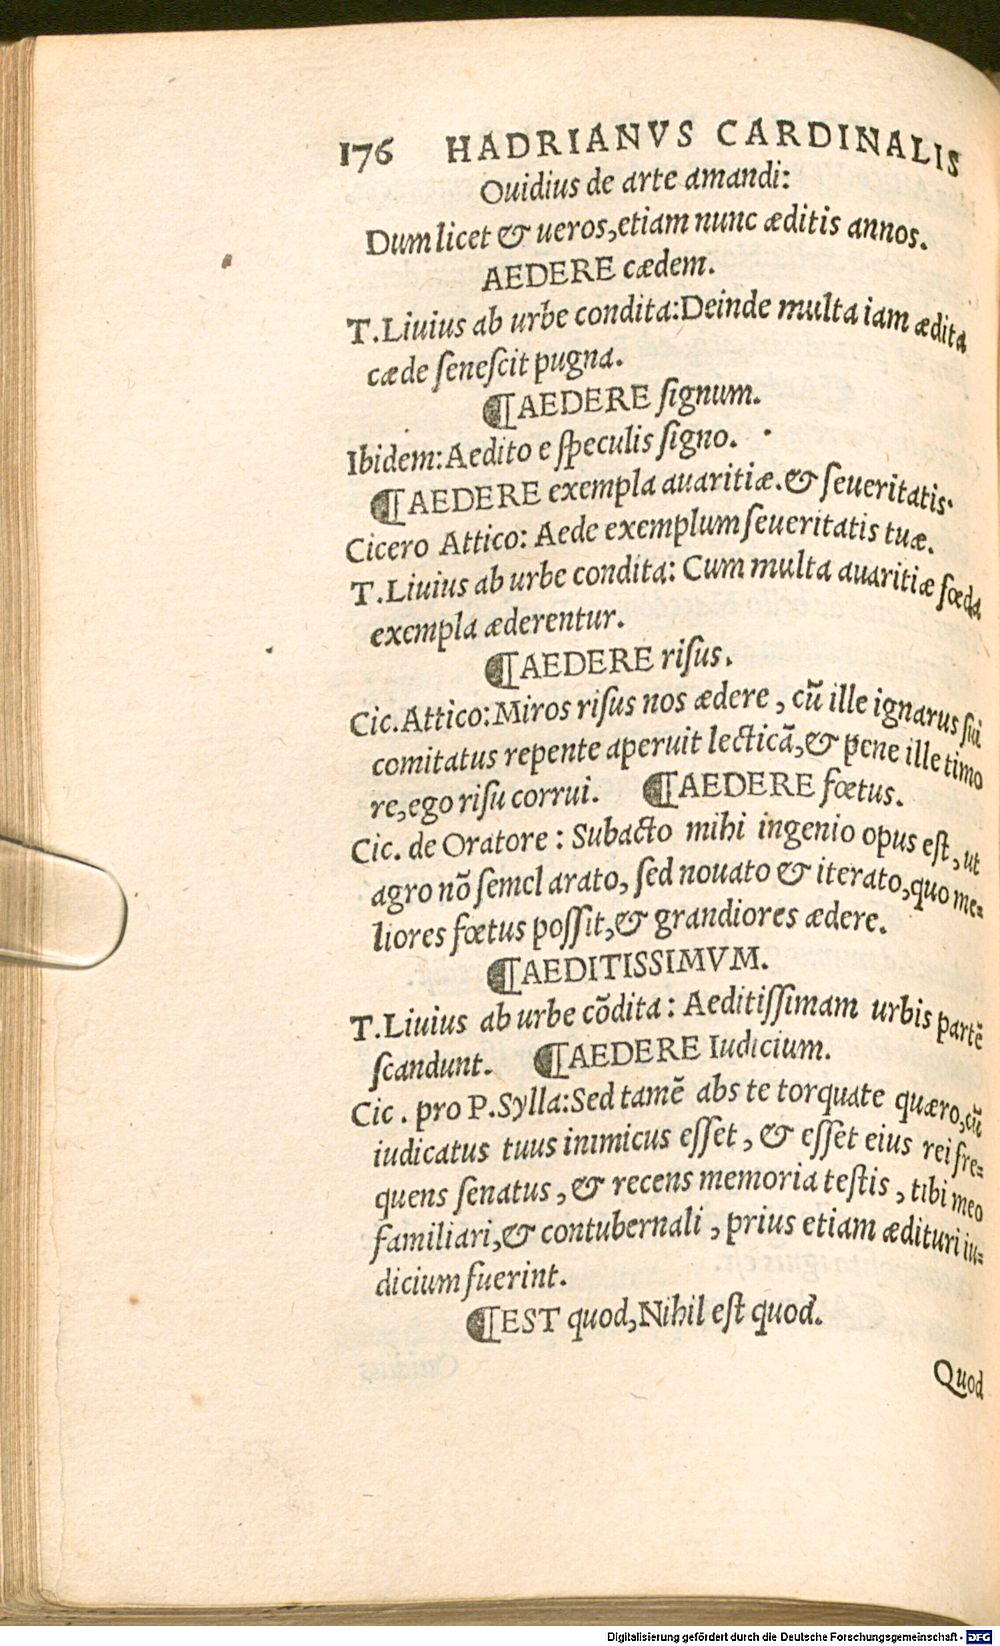 176 HADRIANVS CARDINALIS
Ouidius de arte amandi:
Dum licet & ueros, etiam nunc æditis annos.
AEDERE cædem.
T. Liuius ab urbe condita: Deinde multa iam ædita
cæde ſeneſcit pugna.
¶AEDERE ſignum.
Ibidem: Aedito e ſpeculis ſigno.
¶AEDERE exempla auaritiæ. & ſeueritatis.
Cicero Attico: Aede exemplum ſeueritatis tuæ.
T. Liuius ab urbe condita: Cum multa auaritiæ fœda
exempla æderentur.
¶AEDERE riſus.
Cic. Attico: Miros riſus nos ædere, cũ ille ignarus ſui
comitatus repente aperuit lecticã, & pene ille timo
re, ego riſu corrui. ¶AEDERE fœtus.
Cic. de Oratore: Subacto mihi ingenio opus eſt, ut
agro nõ ſemel arato, ſed nouato & iterato, quo me-
liores fœtus poſſit, & grandiores ædere.
¶AEDITISSIMVM.
T. Liuius ab urbe cõdita: Aeditiſſimam urbis partẽ
ſcandunt. ¶AEDERE Iudicium.
Cic. pro P. Sylla: Sed tamẽ abs te torquate quæro, cũ
iudicatus tuus inimicus eſſet, & eſſet eius rei fre-
quens ſenatus, & recens memoria teſtis, tibi meo
familiari, & contubernali, prius etiam ædituri iu-
dicium fuerint.
¶EST quod, Nihil eſt quod.
Quod
Digitalisierung gefördert durch die Deutsche Forschungsgemeinschaft - DFG